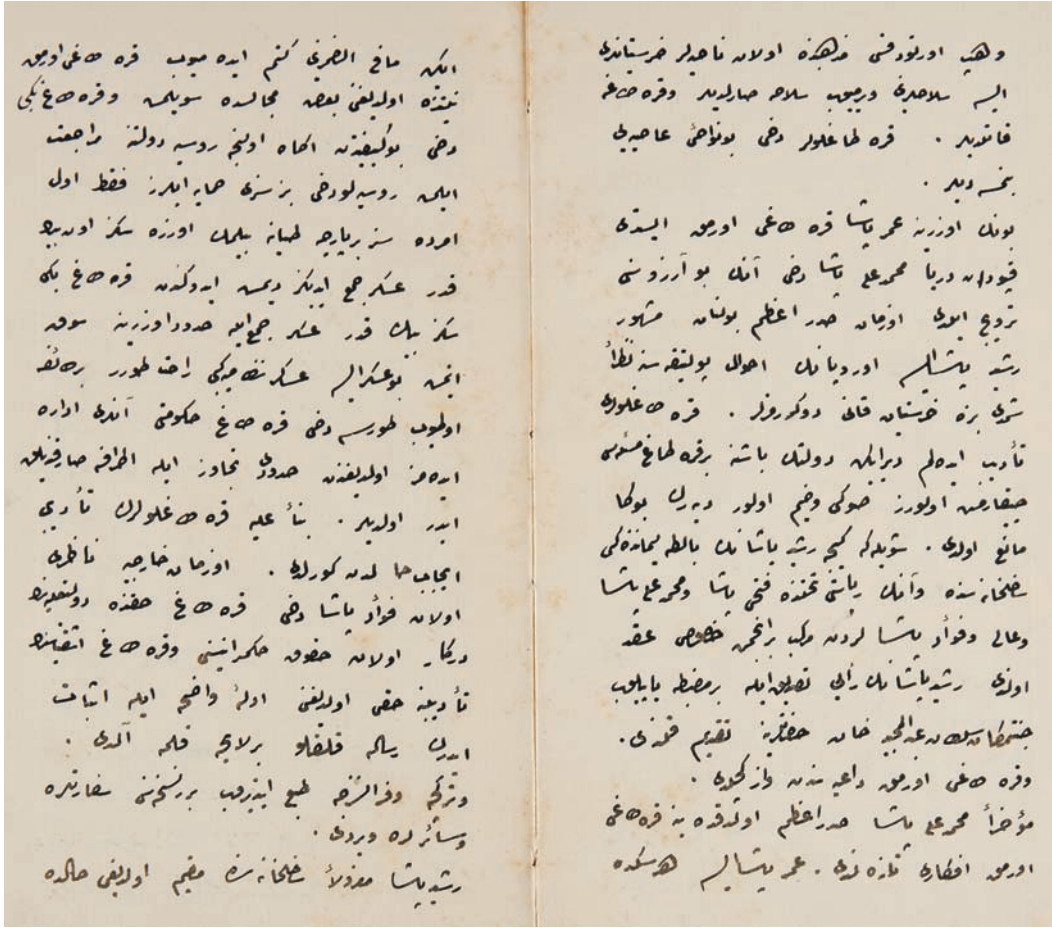 وهپ اورتودقس مذهبنده اولان ناحیه‌لر خرستیانلری
ایسه سلاحلری ویرمیوب سلاحه صارلدیلر وقره طاغه
قاتدیلر . قره طاغلولر دخی بو نواحئ عاصیه‌یی
بنمسه دیلر .
بونك اوزرینه عمر پاشا قره طاغی اورمق ایستدی
قپودان دریا محمد علی پاشا دخی آنك بو آرزوسنی
ترویج ایلدی اوزمان صدر اعظم بولنان مشهور
رشید پاشا ایسه اوروپانك احوال پولیتقه‌سنه نظراً
شمدی بزه خرستیان قانی دوکدورمزلر . قره طاغلولری
تأدیب ایده‌لم دیر ایکن دولتك باشنه بر قره طاغ مسئله‌سی
چیقارمش اولورز صوکی وخیم اولور دیه‌رك بوکا
مانع اولدی . شویله که کیجه رشید پاشانك بالطه لیماننده‌کی
ساحلخانه‌سنده وآنك ریاستی تحتنده فتحی پاشا ومحمد علی پاشا
وعالی وفؤاد پاشا لردن مرکب بر انجمن خصوصی عقد
اولندی رشید پاشانك رأیی تصدیق ایله بر مضبطه یاپیلوب
جنتمکان سلطان عبدالمجید خان حضرتلرینه تقدیم قلندی .
وقره طاغی اورمق داعیه‌سندن واز کچلدی .
مؤخراً محمد علی پاشا صدر اعظم اولدقده ینه قره طاغی
اورمق افکاری تازه‌لندی . عمر پاشا ایسه هرسکده
ایکن مافی الضمیرنی کتم ایده میوب قره طاغی اورمق
نیتنده اولدیغنی بعض مجالسده سویلمش وقره طاغ بکی
دخی بو کیفیتدن آگاه اولنجه روسیه دولتنه مراجعت
ایلمش روسیه‌لو دخی بز سزی حمایه ایدرز فقط اول
امرده سز بر پارچه طیانه بیلمك اوزره سکز اون بیك
قدر عسکر جمع ایدیکز دیمش ایدوکندن قره طاغ بکی
سکز بیك قدر عسکر جمع ایله حدود اوزرینه سوق
ایتمش بو عسکر ایسه عسکر نظامیه کبی راحت طورر بر طائفه
اولمیوب طورسه دخی قره طاغ حکومتی آنلری اداره
ایده‌مز اولدیغندن حدودی تجاوز ایله اطرافه صارقندیلق
ایدر اولدیلر . بناءً علیه قره طاغلولرك تأدیبی
ایجاب حالدن کورلدی . اوزمان خارجیه ناظری
اولان فؤاد پاشا دخی قره طاغ حقنده دولتعلیه‌نك
درکار اولان حقوق حکمرانیسنی وقره طاغ اشقیاسنی
تأدیبه حقی اولدیغنی ادلهٔ واضحه ایله اثبات
ایدرك رساله قلقلو بر لایحه قلمه آلدی .
وترکجه وفرانسزجه طبع ایتدیروب بر نسخه‌سنی سفارتلره
وسائرلره ویردی .
رشید پاشا معزولاً ساحلخانه‌سنده مقیم اولدیغی حالده